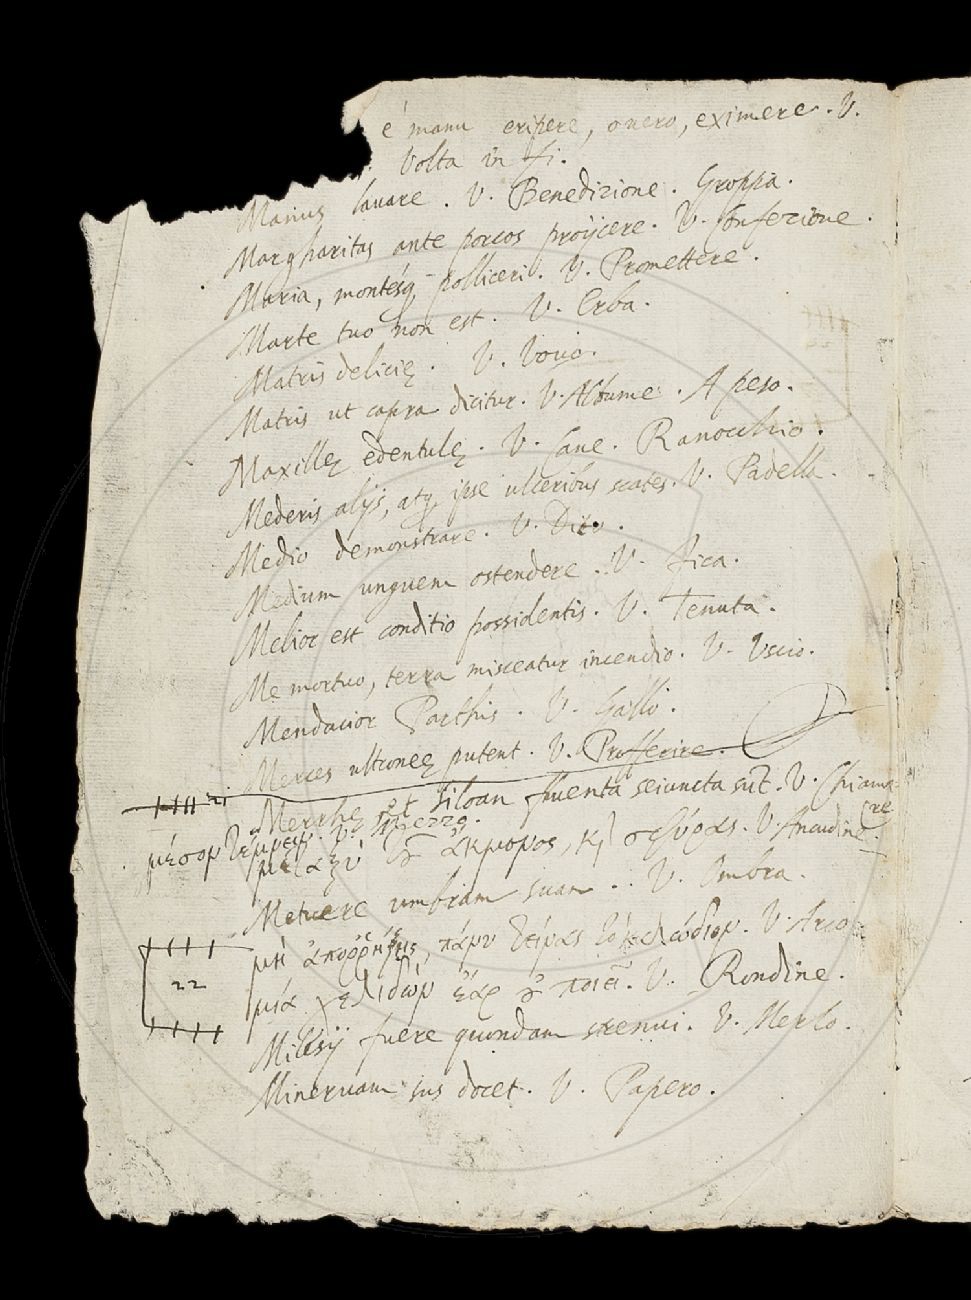 é manu eripere, ouero, eximere. V.
Volta in fi.
Manus lauare. V. Benedizione. Groppa.
Margharitas ante porcos proÿcere. V. Confezione.
Maria, montésq; polliceri. V. Promettere.
Marte tuo non est. V. Erba.
Matris delicię. V. Vouo.
Matris ut capra dicitur. V. Albume. A peso.
Maxillę edentulę. V. Cane. Ranocchio.
Mederis alÿs, atq; ipse ulceribus scates. V. Padella.
Medio demonstrare. V. Dito.
Medium unguem ostendere. V. Fica.
Melior est conditio possidentis. V. Tenuta.
Me mortuo, terra misceatur incendio. V. Vscio.
Mendacior Parthis. V. Gallo.
Merces ultroneę putent. V. Profferire.
21
Merrhę et Siloan fluenta seiuncta sūt. V. Chiamare
μέσον τέμνειν. V. Mezzo.
μεταξὺ τοῦ ἄκμονος, κ σφύρας. V. Ancudine
Metuere umbram suam. V. Ombra.
μὴ πάνυ V. Arco
22
μία χελιδὼν ἔαρ οὐ ποιεῖ. V. Rondine.
Milesÿ fuere quondam strenui. V. Merlo.
Mineruam sus docet. V. Papero.